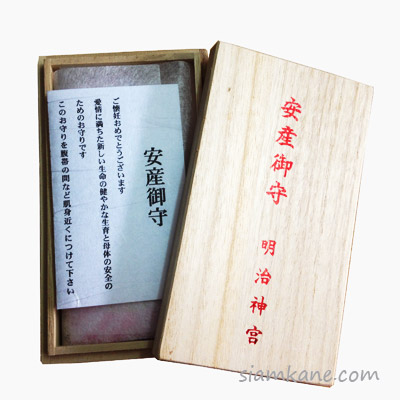 安産御守
ご懐妊おめでとうございます
愛情に満ちた新しい生命の健やかな生育と母体の安全の
ためのお守りです
このお守りを腹帯の間など肌身近くにつけて下さい
安産御守
明治神宮
siamkane.com